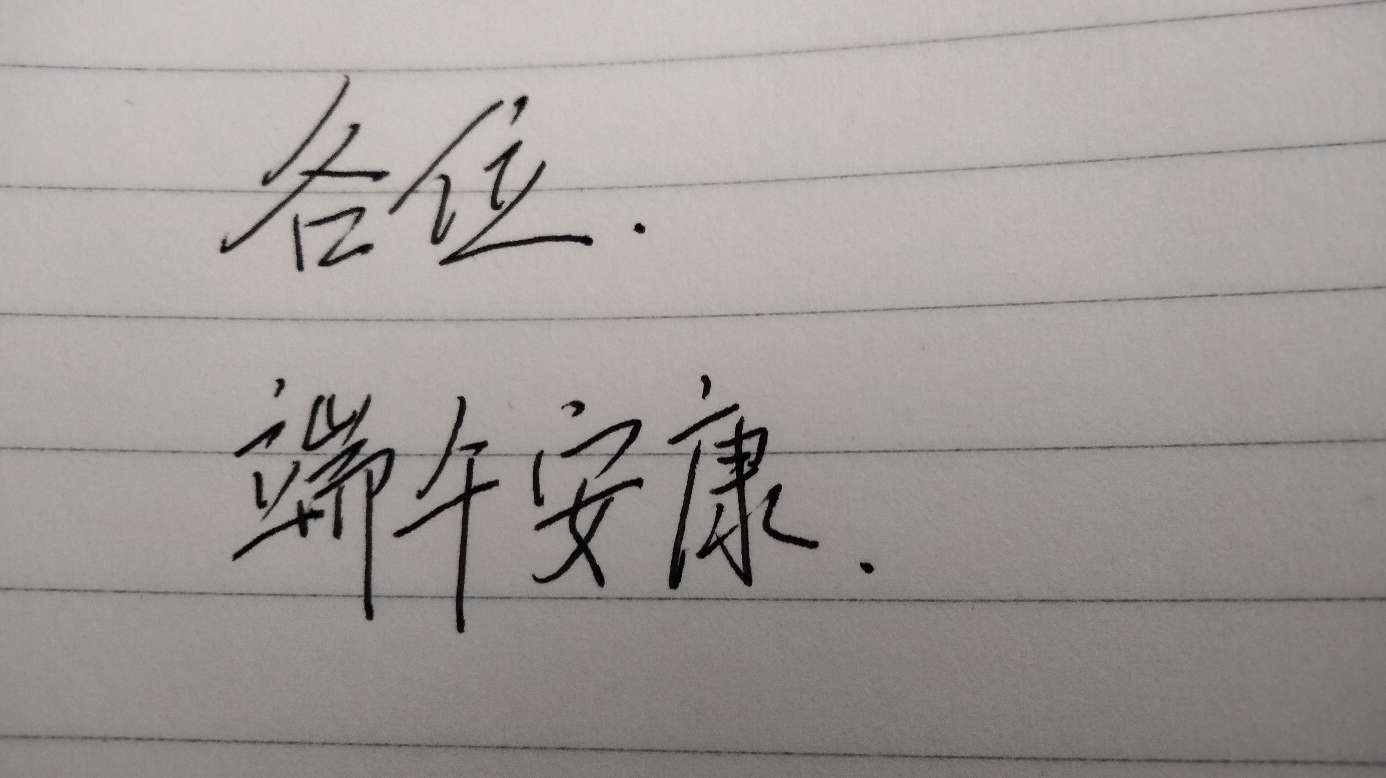 各位.
端午安康.